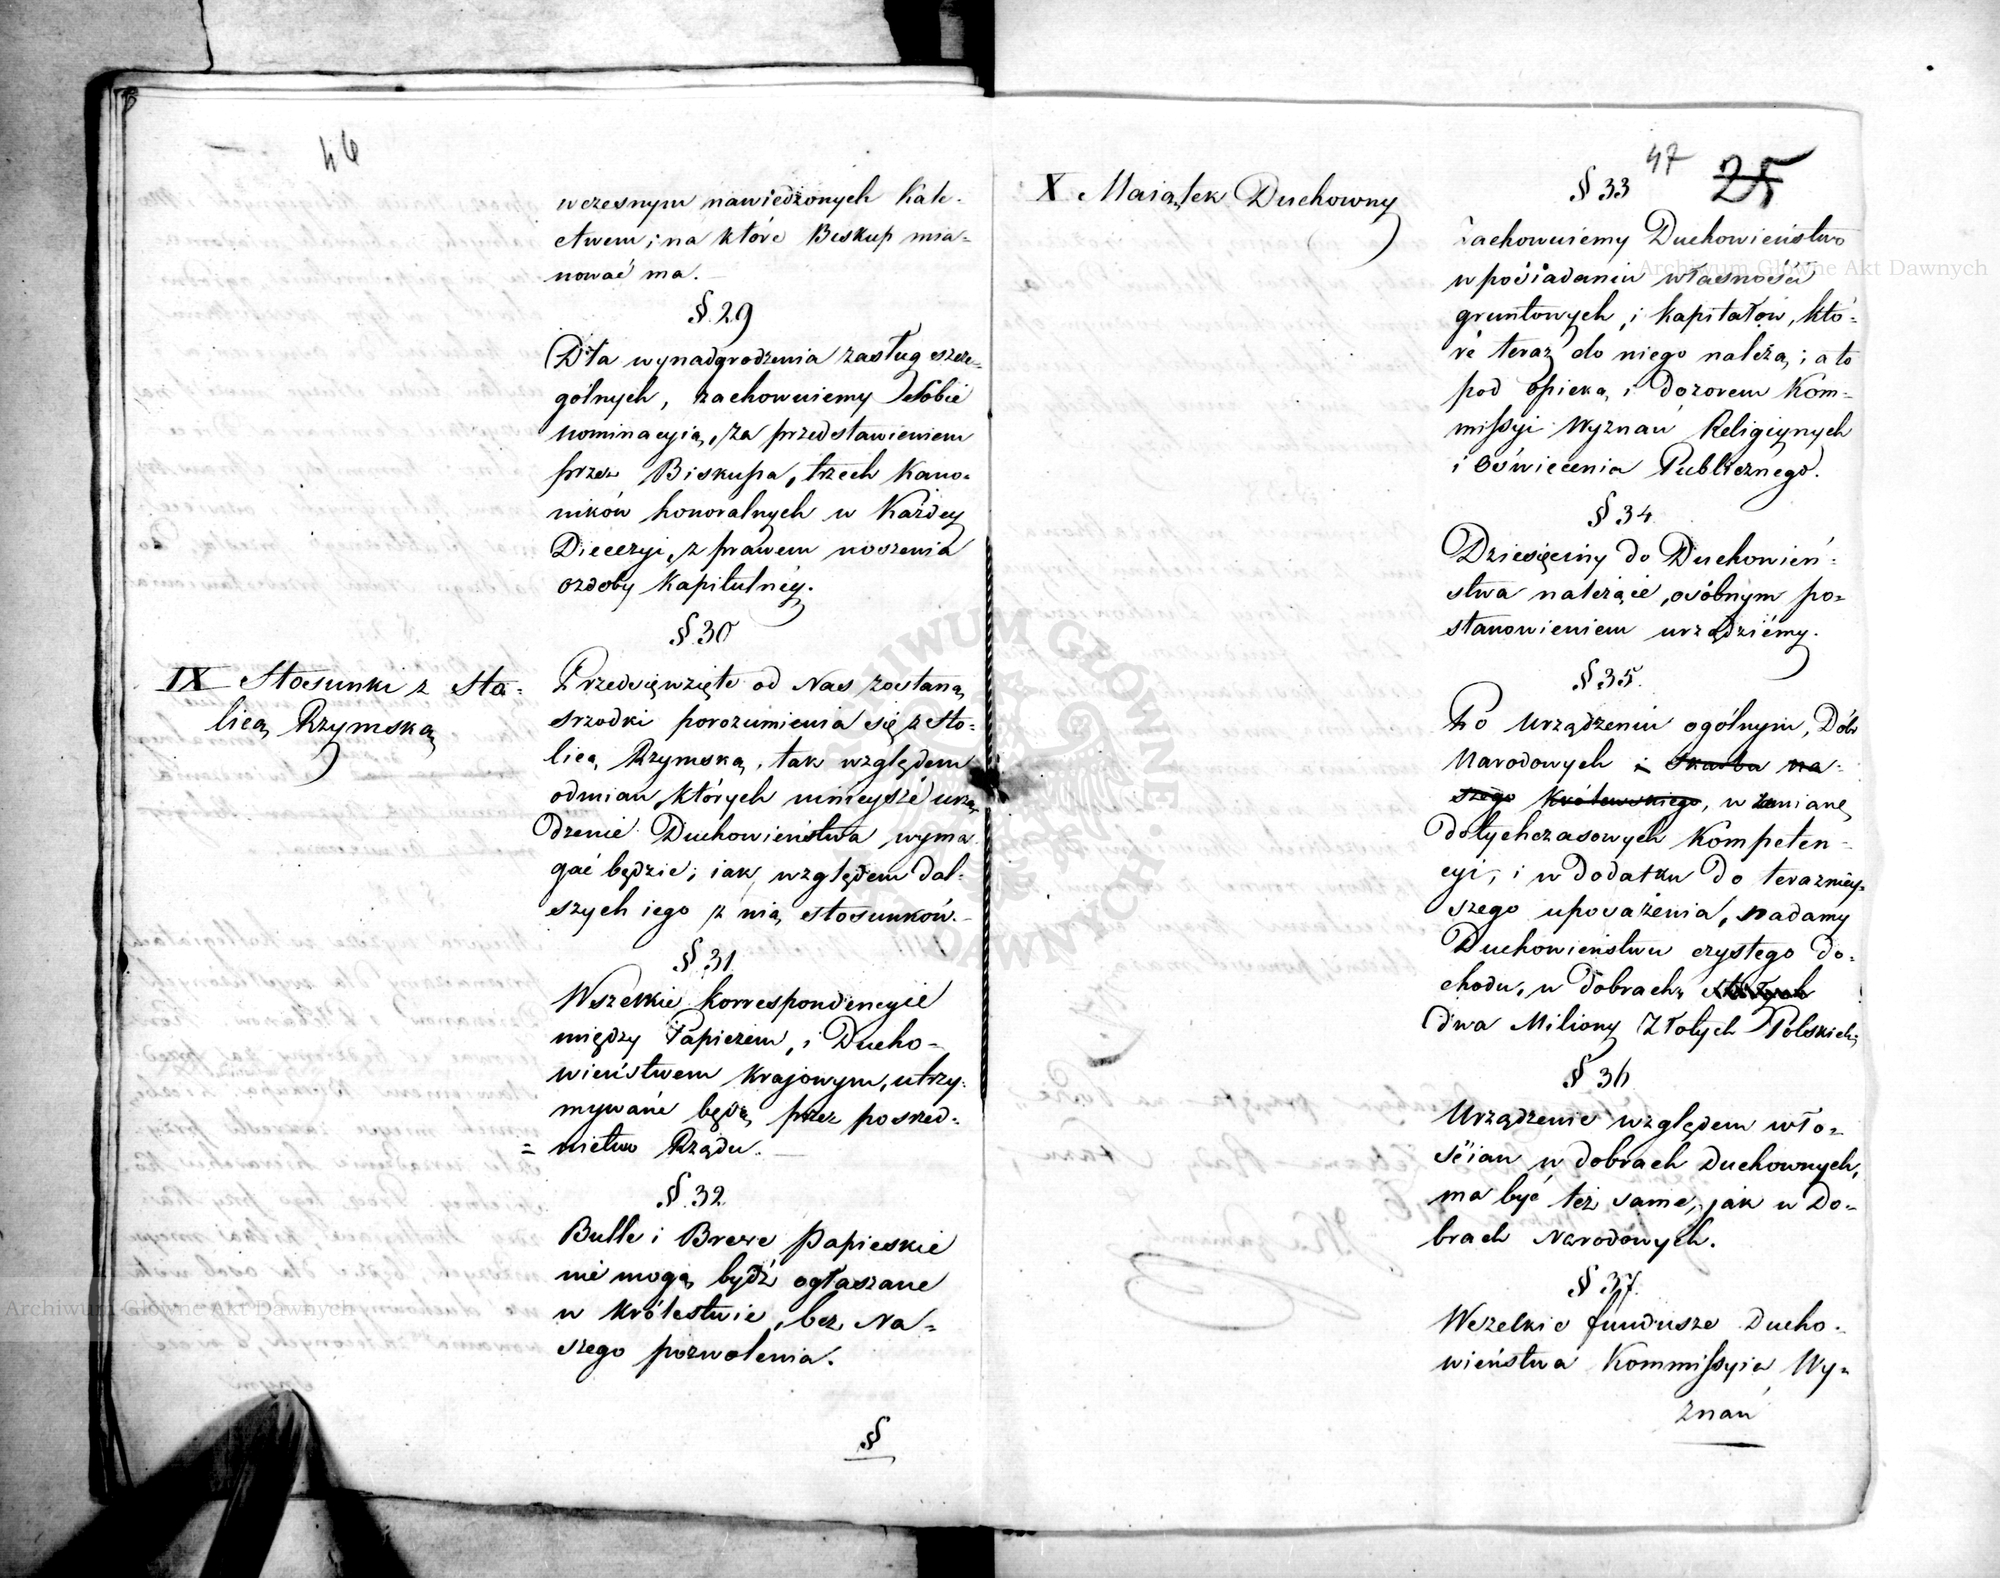 46
wczesnym nawiedzonych kale-
ctwem; na które Biskup mia-
nować ma.
§. 29
Dla wynadgrodzenia zasług szcze-
gólnych, zachowuiemy Sobie
nominacyią, za przedstawieniem
przez Biskupa, trzech Kano-
ników honoralnych w Każdey
Diecezyi, z prawem noszenia
ozdoby Kapitulnéy.
§. 30
IX Stosunki z Sto-
licą Rzymską
Przedsięwzięte od Nas zostaną
srzodki porozumienia się z Sto-
licą Rzymską, tak względem
odmian, których ninieysze urzą-
dzenie Duchowieństwa wyma
gać będzie; iak, względem dal-
szych iego z nią stosunków.
§. 31
Wszelkie korrespondencyie
między Papieżem, i Ducho-
wieństwem Krajowym, utrzy-
mywane będą przez posred-
= nictwo Rządu.
§. 32
Bulle i Breve Papieskie
nie mogą bydź ogłaszane
w Królestwie, bez Na-
szego pozwolenia.
§
47 25
X Maiątek Duchowny
§ 33
Zachowuiemy Duchowieństwo
w posiadaniu własności
gruntowych, i kapitałów, któ-
re teraz do niego należą; a to
pod opieką, i dozorem Kom-
missyi Wyznań Religiynych
i Oświecenia Publicznego.
§ 34
Dziesięciny do Duchowień-
stwa należące, osóbnym po-
stanowieniem urządziémy.
§ 35.
Po urządzeniu ogólnym, Dóbr
Narodowych i Skarbu na-
szego Królewskiego, w zamianę
dotychczasowych Kompeten-
cyi, i w dodatku do terazniey-
szego uposażenia, nadamy
Duchowieństwu czystego do-
chodu, w dobrach,
dwa Miliony Złotych Polskich,
§ 36
Urządzenie względem wło-
ścian w dobrach Duchownych,
ma być też same, jak w Do-
brach Narodowych.
§ 37.
Wszelkie fundusze Ducho-
wieństwa Kommissyia Wy-
znań
Archiwum Główne Akt Dawnych
Archiwum Główne Akt Dawnych
ARCHIWUM GŁÓWNE AKT DAWNYCH